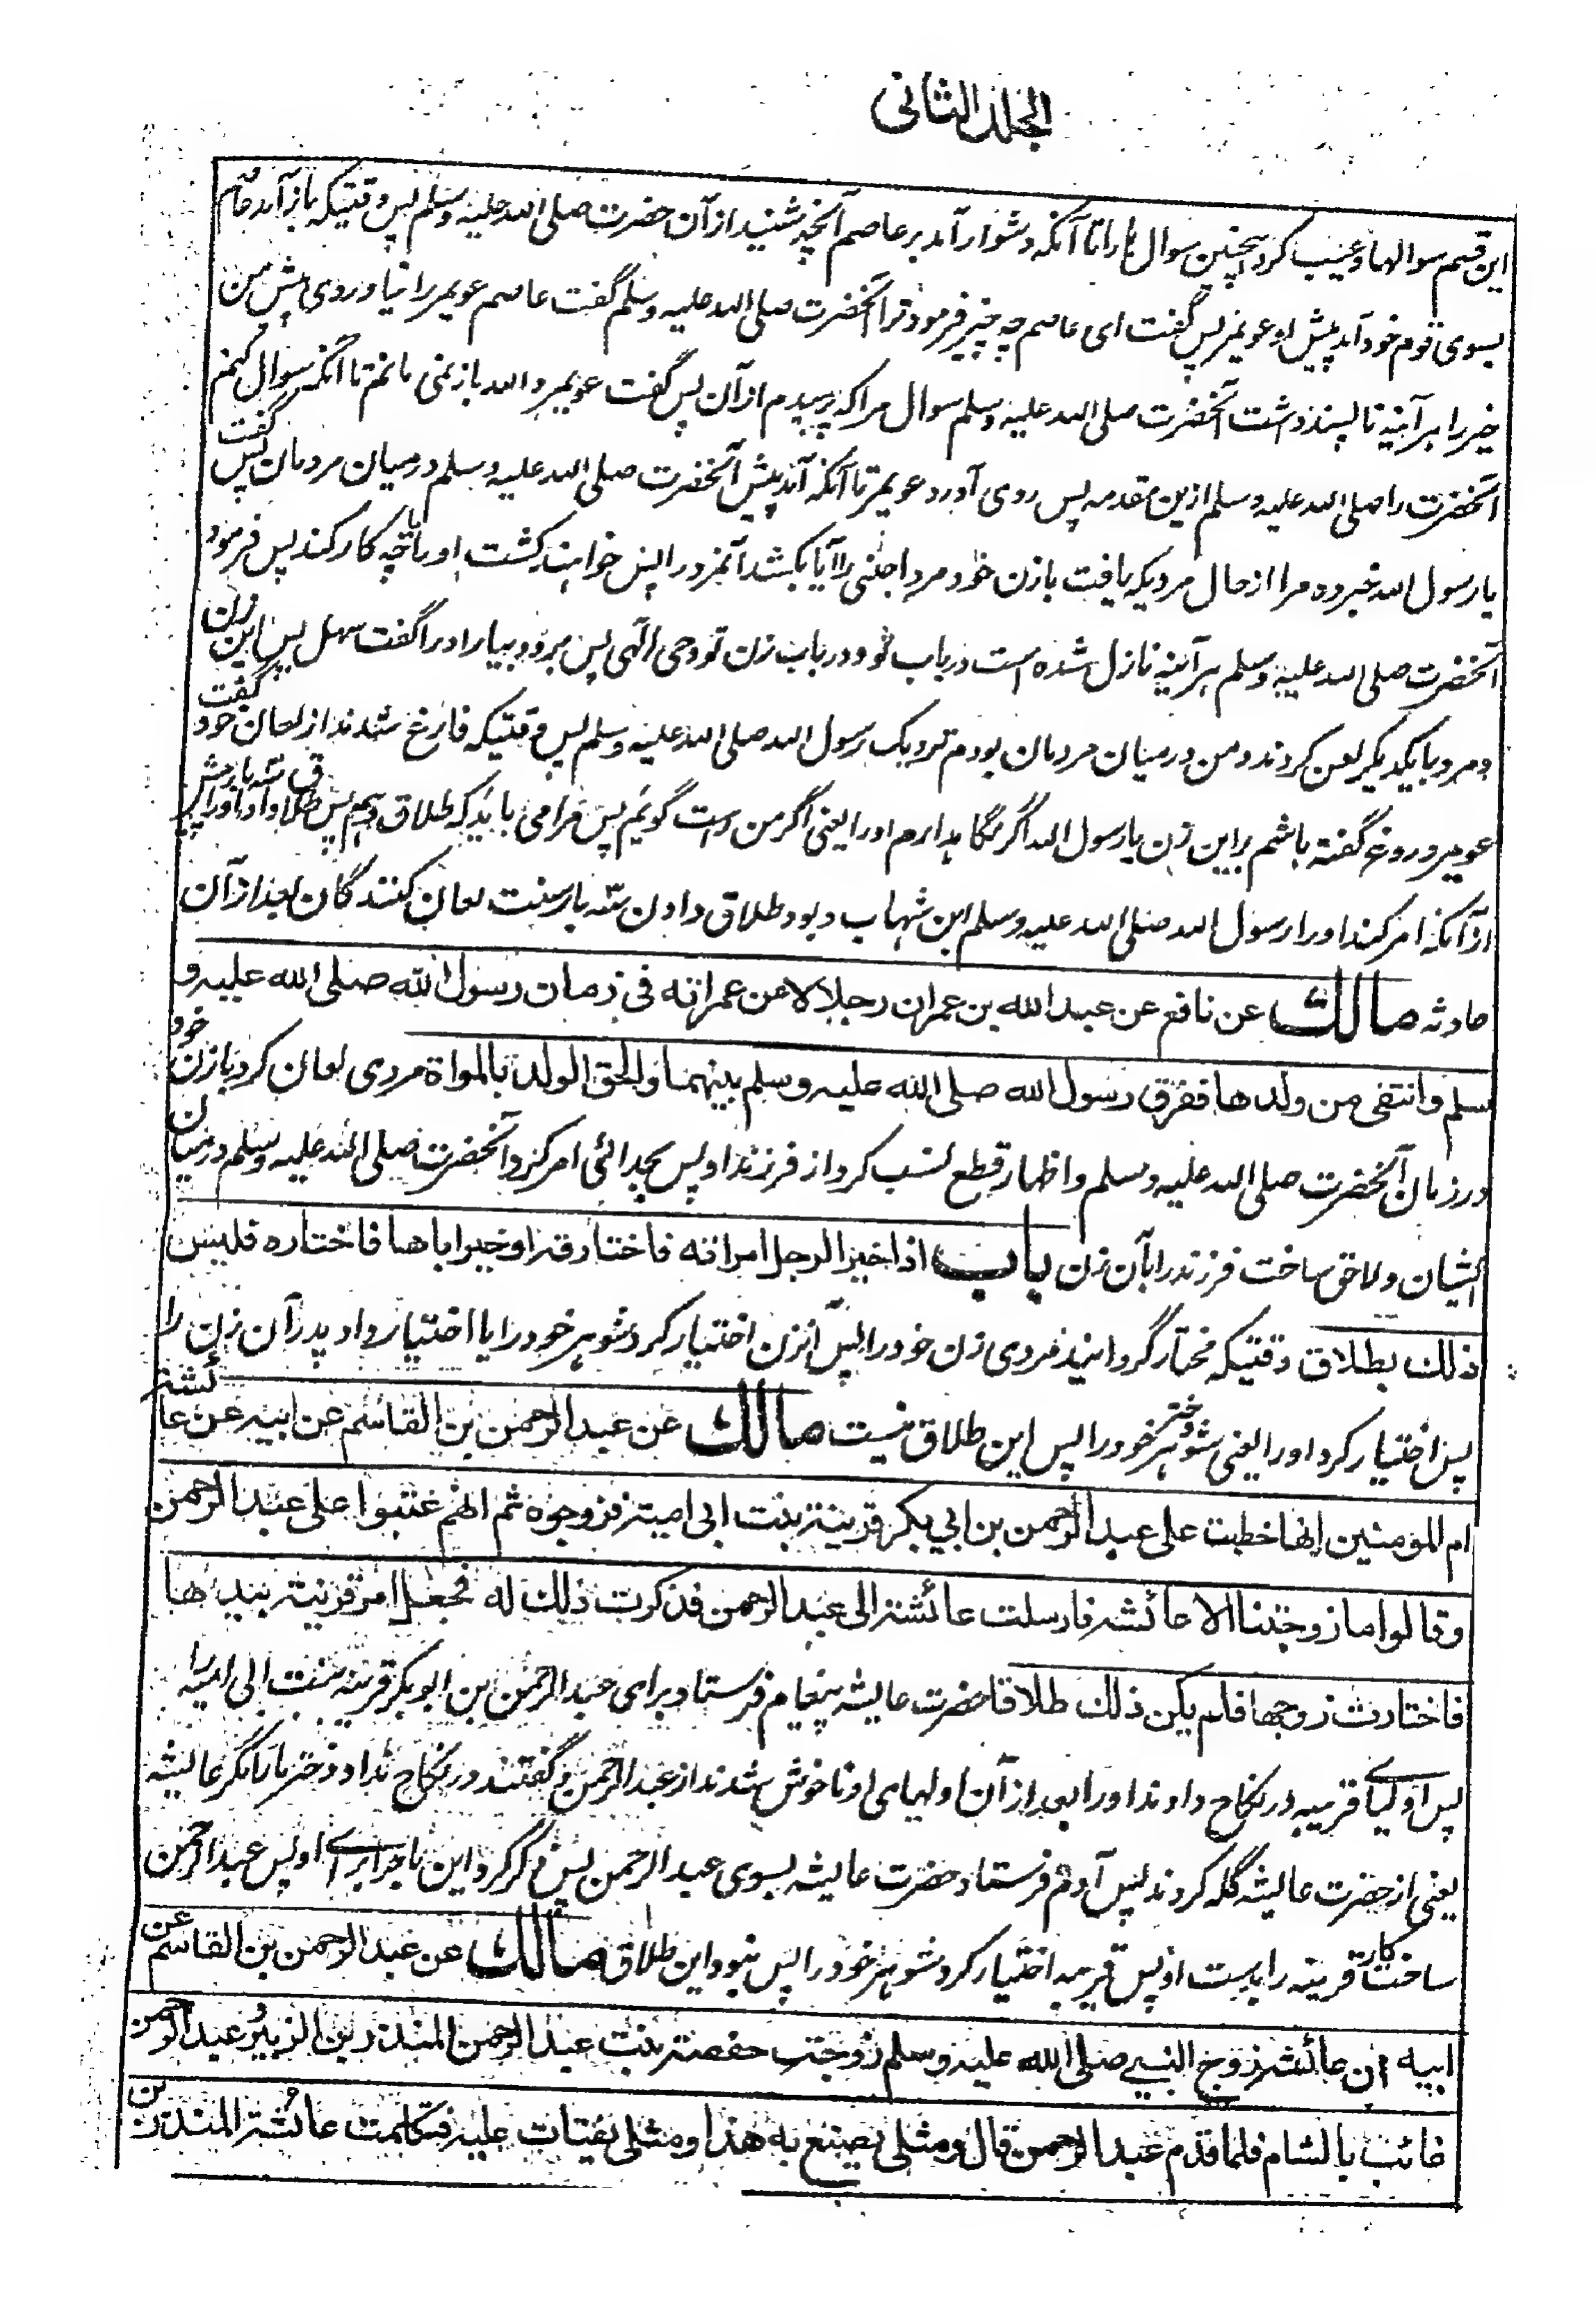 الجلد الثانی
این قسم سوالها و عیب کرد اینچنین سوال ها را تا آنکه دشوار آمد بر عاصم آنچه شنید از آن حضرت صلی الله علیه وسلم پس وقتیکه باز آمد عاصم
بسوی قوم خود آمد پیش او عویمر پس گفت ای عاصم چه چیز فرمود ترا آنحضرت صلی الله علیه وسلم گفت عاصم عویمر را نیاوردی پیش من
خیر را هر آینه ناپسند داشت آنحضرت صلی الله علیه وسلم سوال مرا که پرسیدم از آن پس گفت عویمر والله باز نمی مانم تا آنکه سوال کنم
آنحضرت را صلی الله علیه وسلم ازین مقدمه پس روی آورد عویمر تا آنکه آمد پیش آنحضرت صلی الله علیه وسلم درمیان مردمان پس گفت
یا رسول الله خبر ده مرا از حال مردیکه یافت با زن خود مرد اجنبی را آیا بکشد آنمرد را پس خواهند کشت او را یا چه کار کند پس فرمود
آنحضرت صلی الله علیه وسلم هر آینه نازل شده است در باب تو و در باب زن تو وحی الهی پس برو و بیار او را گفت سهل پس این زن
و مرد با یکدیگر لعن کردند و من درمیان مردمان بودم نزدیک رسول الله صلی الله علیه وسلم پس وقتیکه فارغ شدند از لعان خود گفت
عویمر دروغ گفته باشم بر این زن یا رسول الله اگر نگاه دارم او را یعنی اگر من راست گویم پس مرا می باید که طلاق دهم پس طلاق داد او را سه بار پیش
از آنکه امر کند او را رسول الله صلی الله علیه وسلم ابن شهاب و بود طلاق دادن سه بار سنت لعان کنندگان بعد از آن
حادثه مالك عن نافع عن عبد الله بن عمر ان رجلا لاعن عمراته فی زمان رسول الله صلی الله علیه و
سلم وانتفی من ولدها ففرق رسول الله صلی الله علیه وسلم بینهما والحق الولد بالمراة مردی لعان کرد با زن خود
در زمان آنحضرت صلی الله علیه وسلم و اظهار قطع نسب کرد از فرزند او پس بجدائی امر کرد آنحضرت صلی الله علیه وسلم درمیان
ایشان و لاحق ساخت فرزند را بآن زن باب اذا خیر الرجل امراته فاختارته او خیر اباها فاختاره فلیس
ذلك بطلاق وقتیکه مختار گرداند مردی زن خود را پس آنزن اختیار کرد شوهر خود را یا اختیار داد پدر آن زن را
پس اختیار کرد او را یعنی شوهر دختر خود را پس این طلاق نیست مالك عن عبد الرحمن بن القاسم عن ابیه عن عائشة
ام المومنین انها خطبت علی عبد الرحمن بن ابی بکر قریبة بنت ابی امیة فزوجوه ثم انهم عتبوا علی عبد الرحمن
وقالوا ما زوجنا الا عائشة فارسلت عائشة الی عبد الرحمن فذکرت ذلك له فجعل امر قریبة بیدها
فاختارت زوجها فلم یکن ذلك طلاقا حضرت عایشه پیغام فرستاد برای عبد الرحمن بن ابو بکر قریبه بنت ابی امیه را
پس اولیای قریبه در نکاح دادند او را پس از آن اولیای او ناخوش شدند از عبد الرحمن و گفتند در نکاح نداد دختر ما را مگر عایشه
یعنی از حضرت عایشه گله کردند پس آدم فرستاد حضرت عایشه بسوی عبد الرحمن پس ذکر کرد این ماجرا برای او پس عبد الرحمن
ساخت کار قریبه را بدست او پس قریبه اختیار کرد شوهر خود را پس نبود این طلاق مالك عن عبد الرحمن بن القاسم عن
ابیه ان عائشة زوج النبی صلی الله علیه وسلم زوجت حفصة بنت عبد الرحمن المنذر بن الزبیر وعبد الرحمن
غائب بالشام فلما قدم عبد الرحمن قال ومثلی یصنع به هذا ومثلی یفتات علیه فتکلمت عائشة المنذر بن